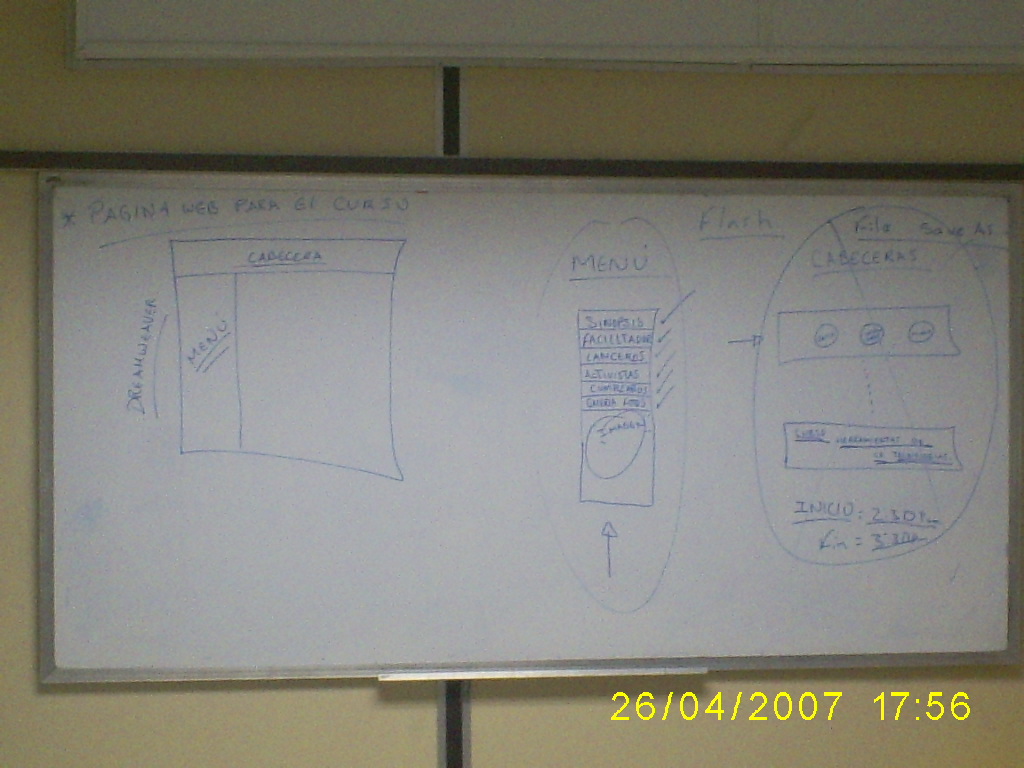 * PAGINA WEB PARA EL CURSO
CABECERA
MENÚ
DREAMWEAVER
MENÚ
SINOPSIS
FACILITADOR
LANCEROS
ACTIVISTAS
CUMPLEAÑOS
IMAGEN
Flash
File Save As
CABECERAS
CURSO HERRAMIENTAS DE
LA
INICIO: 2:30 Pm
Fin = 3:30 Pm
26/04/2007 17:56